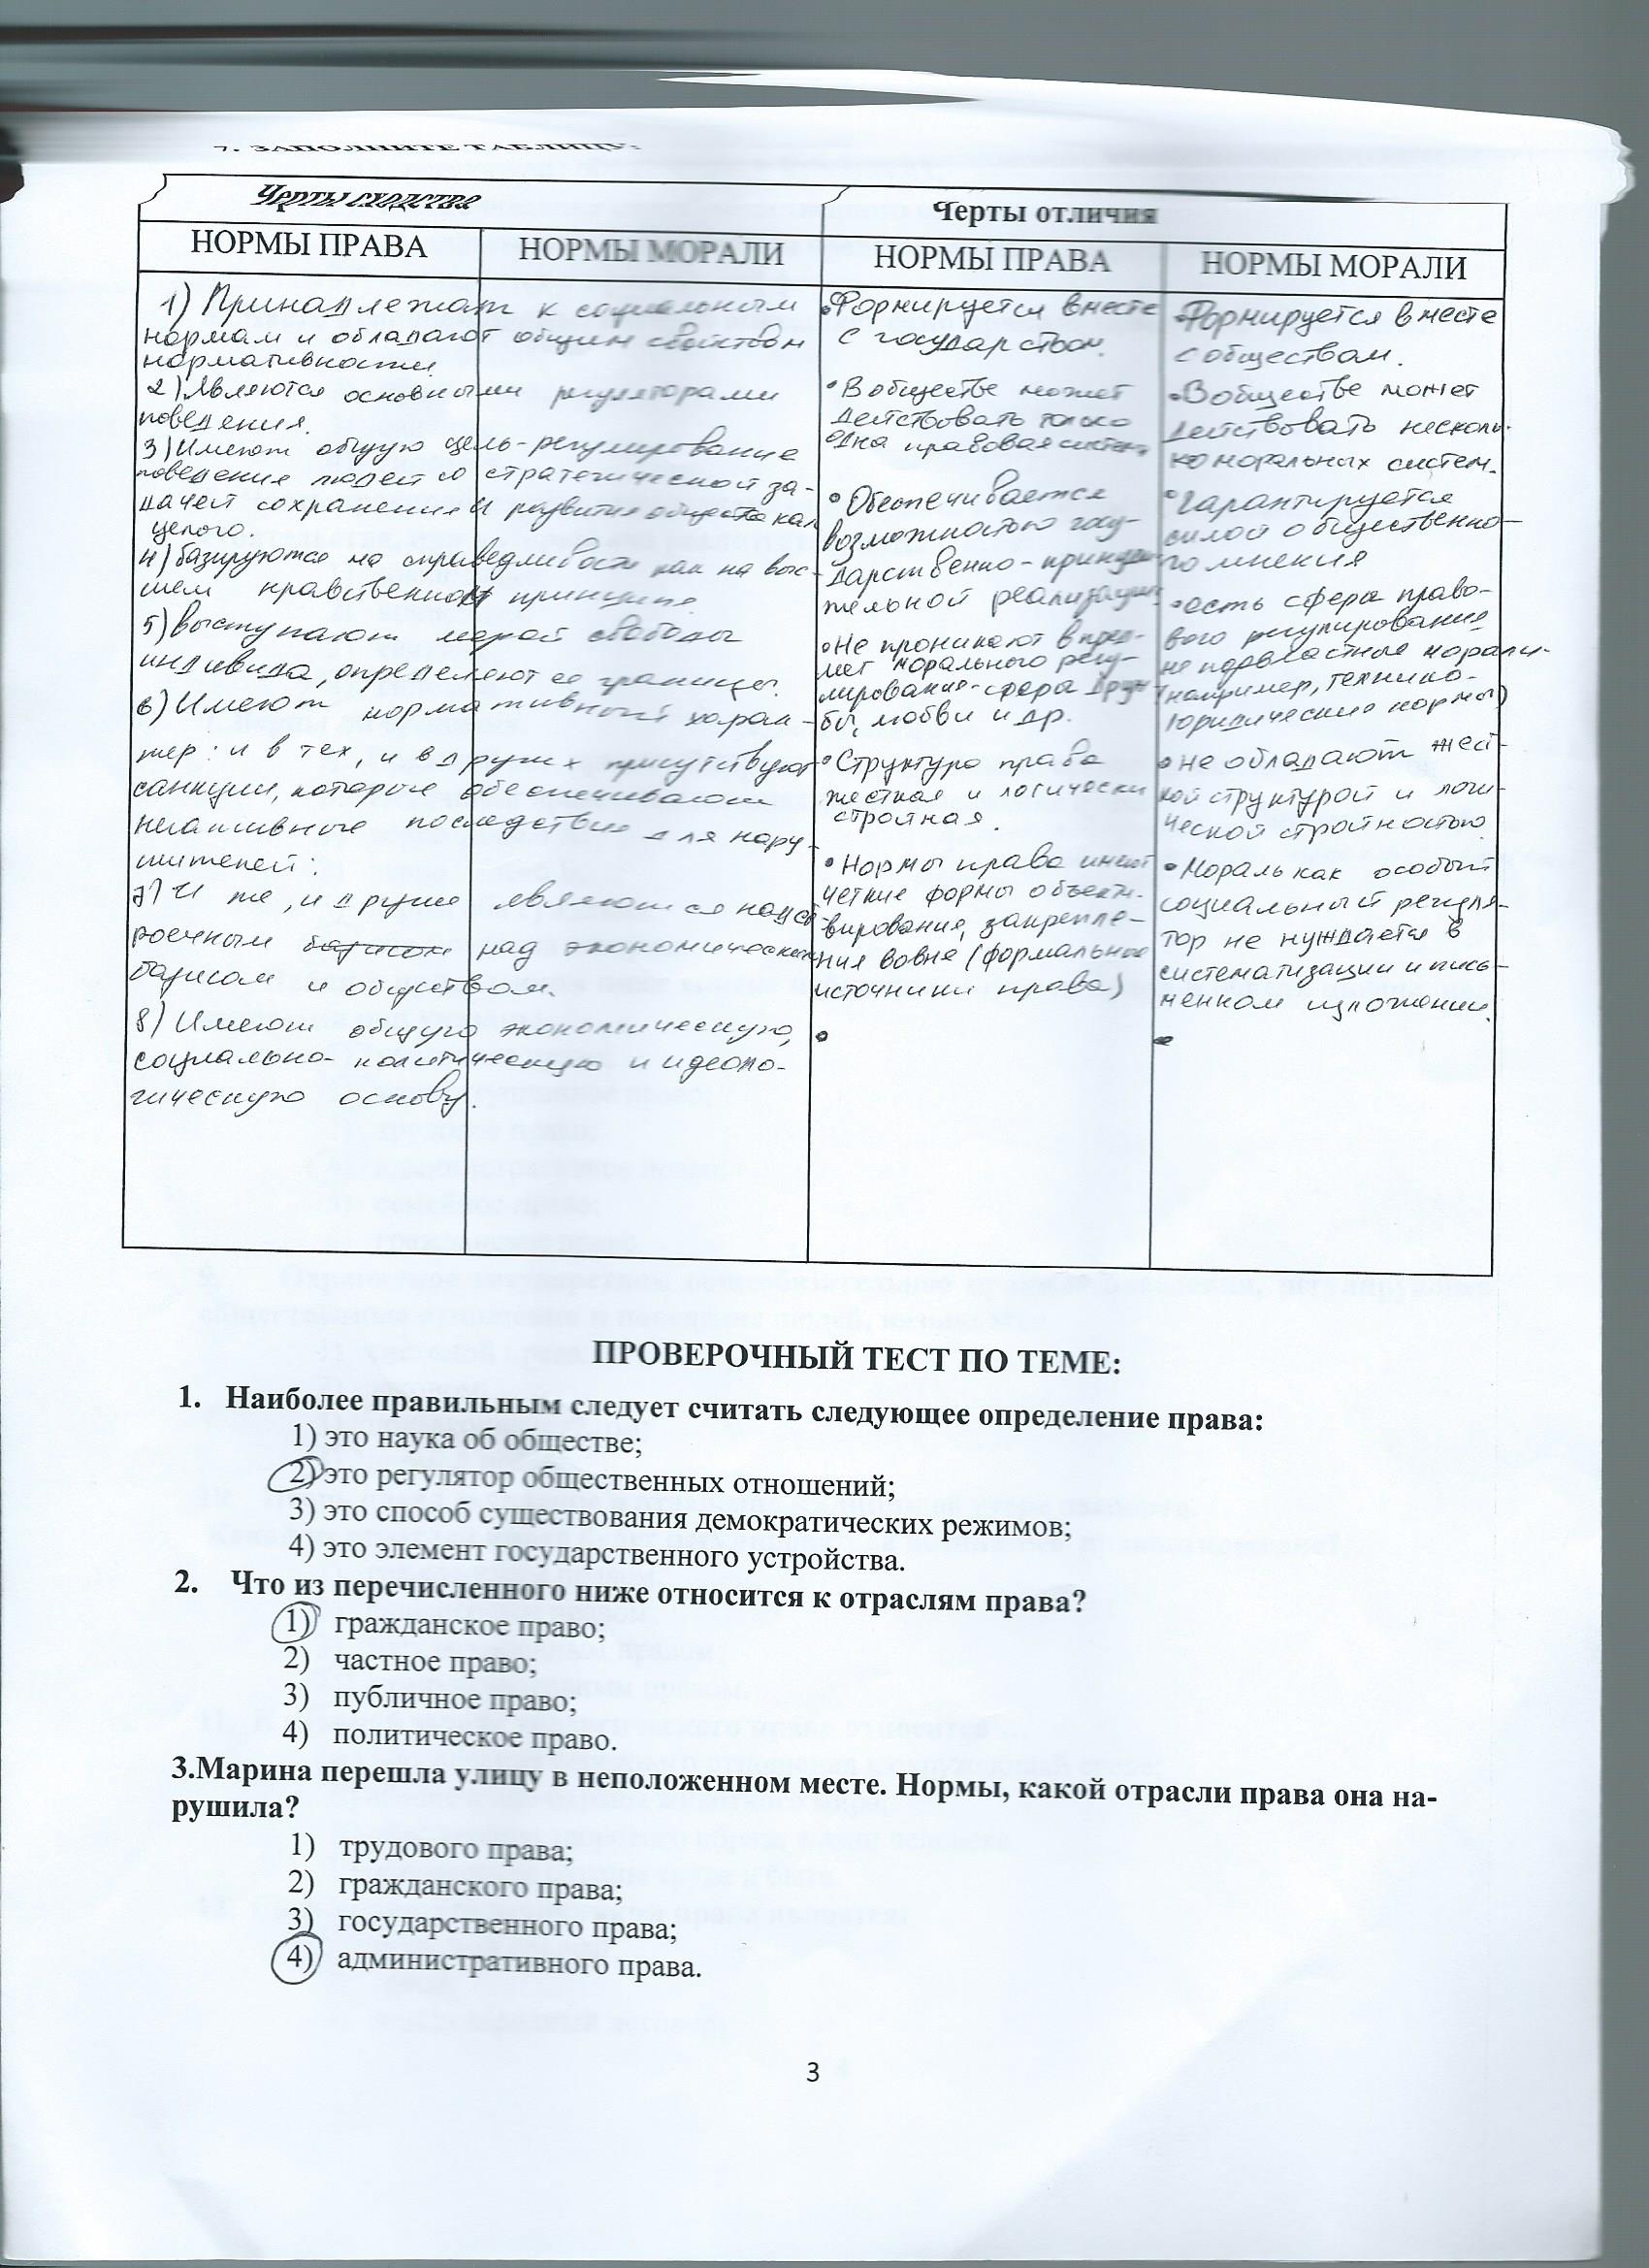 7. ЗАПОЛНИТЕ ТАБЛИЦУ:
Черты сходства
Черты отличия
НОРМЫ ПРАВА
НОРМЫ МОРАЛИ
НОРМЫ ПРАВА
НОРМЫ МОРАЛИ
1) Принадлежат к социальным
нормам и обладают общим свойством
нормативности.
2) Являются основными регуляторами
поведения.
3) Имеют общую цель - регулирование
поведения людей со стратегической за-
дачей сохранения и развития общества как
целого.
4) базируются на справедливости как на выс-
шем нравственном принципе.
5) выступают мерой свободы
индивида, определяют ее границы.
6) Имеют нормативный харак-
тер: и в тех, и в других присутствуют
санкции, которые обеспечивают
негативные последствия для нару-
шителей:
7) И те, и другие являются надст
роечным базисом над экономическим
базисом и обществом.
8) Имеют общую экономическую,
социально-политическую и идеоло-
гическую основу.
•Формируется вместе
с государством.
•В обществе может
действовать только
одна правовая система
•Обеспечивается
возможностью госу-
дарственно-принуди
тельной реализации
•Не проникают в пред-
мет морального регу-
лирования-сфера друж
бы, любви и др.
•Структура права
жесткая и логически
стройная.
•Нормы права имеют
четкие формы объекти-
вирования, закрепле-
ния вовне (формальные
источники права)
•
•Формируется вместе
с обществом.
•В обществе может
действовать несколь-
ко моральных систем.
•Гарантируется
силой общественно-
го мнения
•есть сфера право-
вого регулирования
не подвластные морали
(например, технико-
юридические нормы)
•не обладают жест-
кой структурой и логи-
ческой стройностью
•Мораль как особый
социальный регуля-
тор не нуждается в
систематизации и пись-
менном изложении.
•
ПРОВЕРОЧНЫЙ ТЕСТ ПО ТЕМЕ:
1. Наиболее правильным следует считать следующее определение права:
1) это наука об обществе;
2) это регулятор общественных отношений;
3) это способ существования демократических режимов;
4) это элемент государственного устройства.
2. Что из перечисленного ниже относится к отраслям права?
1) гражданское право;
2) частное право;
3) публичное право;
4) политическое право.
3.Марина перешла улицу в неположенном месте. Нормы, какой отрасли права она на-
рушила?
1) трудового права;
2) гражданского права;
3) государственного права;
4) административного права.
3